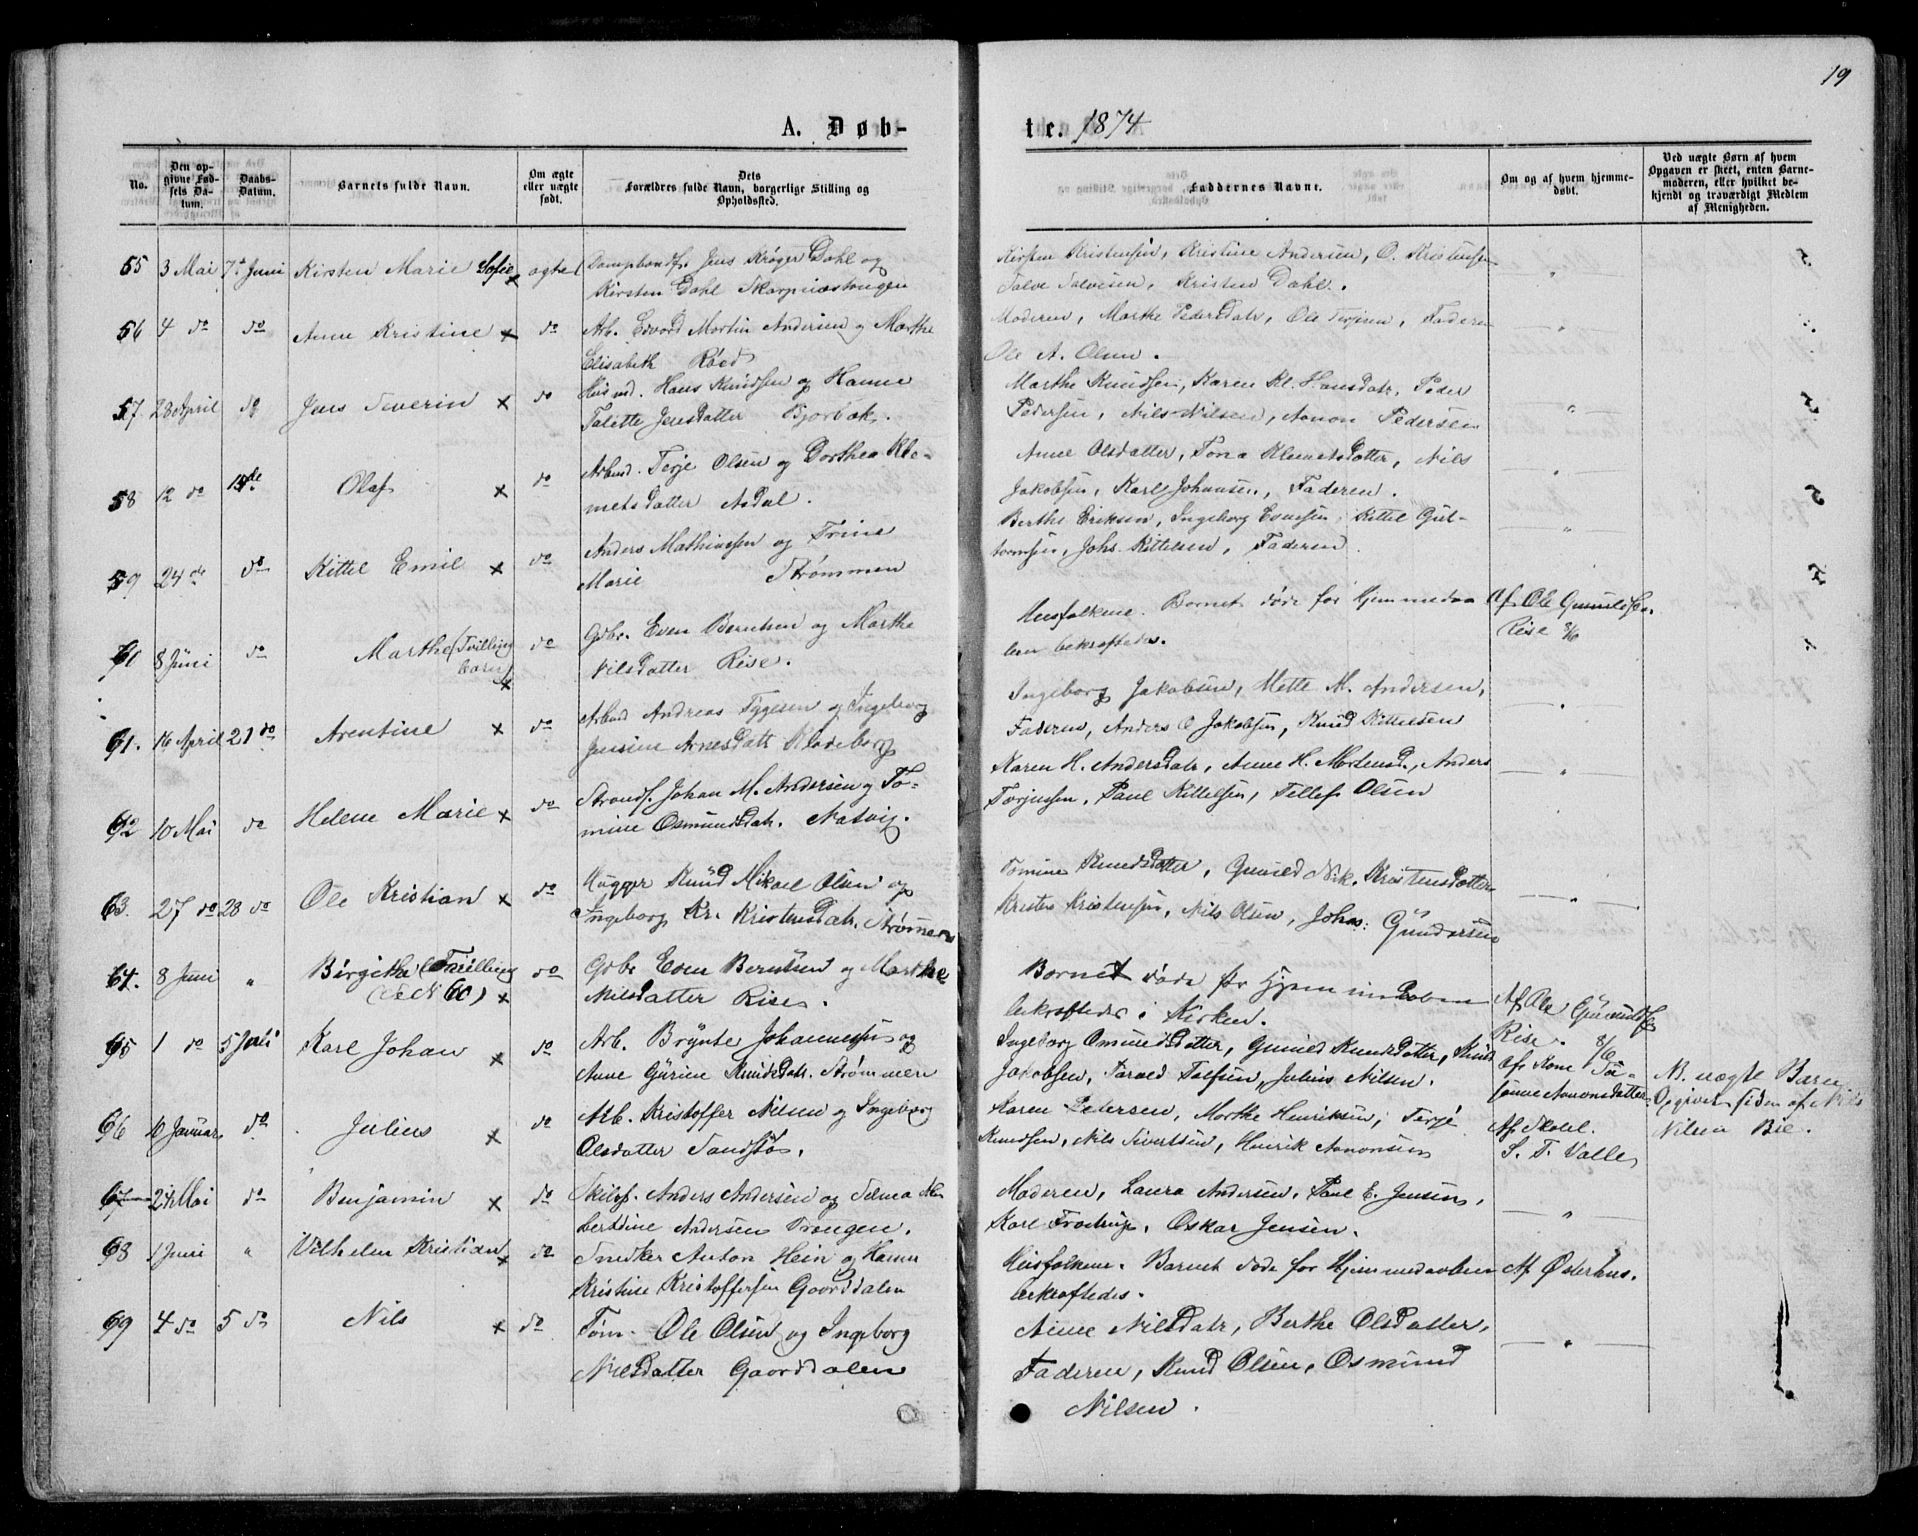 19
A. Døb-
te. 1874
No.
Den op-
givne Fød-
sels Da-
tum.
Daabs-
Datum.
Barnets fulde Navn.
Om ægte
eller uægte
født.
Dets
Forældres fulde Navn, borgerlige Stilling og
Opholdssted.
Faddernes Navne.
Om og af hvem hjemme-
døbt.
Ved uægte Børn af hvem
Opgaven er skeet, enten Barne-
moderen, eller hvilket be-
kjendt og troværdigt Medlem
af Menigheden.
55 3 Mai 7de Juni Kirsten Marie Sofie x ægte Jens Krøger Dahl og
Kirsten Dahl
Kirsten Kristensen, Kristine Andersen, O. Kristensen
Kristen Dahl.
56 4 do do Anne Kristine x do Arb. Edvard Martin Andersen og Marthe
Elisabeth Røed
Moderen, Marthe Pedersdatr, Ole Terjesen, Faderen
Ole A. Olsen.
57 28 April do Jens Severin x do Husmd. Hans Knudsen og Hanne
Talette Jensdatter Bjorbæk.
Marthe Knudsen, Karen Kl. Hansdatr, Peder
Pedersen, Nils Nilsen, Aanon Pedersen
58 12 do 14de Olaf x do Arbmd. Terje Olsen og Dorthea Kle-
metsdatter Asdal.
Anne Olsdatter, Tona Klemetsdatter, Nils
Jakobsen, Karl Johansen, Faderen.
59 24 do do Kittel Emil x do Anders Mathiassen og Trine
Marie Strømmen
Berthe Eriksen, Ingeborg Evensen, Kittel Gut-
tormsen, Johs. Kittelsen, Faderen.
60 8 Juni do Marthe (Tvilling
barn) x do Gdbr. Even Berntsen og Marthe
Nilsdatter Rise.
Husfolkene. Barnet døde før Hjemmedaa-
ben bekræftedes.
Af Ole Gunuldsen
Rise 8/6
61. 16 April 21 do Arentine x do Arbmd Andreas Tygesen og Ingeborg
Jensine Arnesdatr Klodeborg
Ingeborg Jakobsen, Mette M. Andersen,
Faderen, Anders O Jakobsen, Knud Kittelsen
62 10 Mai do Helene Marie x do Strandf. Johan M. Andersen og To-
mine Osmundsdatr. Natvig.
Karen H. Andersdatr, Anne H. Mortensd., Anders
Torjussen, Paul Kittelsen, Tellef Olsen
63. 27 do 28 do Ole Kristian x do Hugger Knud Mikael Olsen og
Ingeborg Kr. Kristensdatr. Strømmen
Tomine Knudsdatter, Gunild Nik. Kristensdatter
Kristen Kristensen, Nils Olsen, Johs: Gundersen
64. 8 Juni " Birgithe (Tvilling
(se N 60) x do Gdbr Even Berntsen og Marthe
Nilsdatter Rise.
Barnet døde før Hjemmedaaben
bekræftedes i Kirken.
Af Ole Gunuldsen
Rise. 8/6
65 1 do 5 Juli Karl Johan x do Arb. Brynte Johannessen og
Anne Gurine Knudsdatr. Strømmen
Ingeborg Omundsdatter, Gunild Knudsdatter, Knud
Jakobsen, Tarald Tolfsen, Julius Nilsen.
Af Kone
Aanonsdatter
66 10 Januar do Julius x do Arb. Kristoffer Nilsen og Ingeborg
Olsdatter Sandstø.
Karen Pedersen, Marthe Henriksen, Terje
Knudsen, Nils Sivertsen, Henrik Aanonsen
Af Skolel.
S. T. Valle
N. uægte Barn.
Opgivet siden af Nils
Nilsen Bie.
67 24 Mai do Benjamin x do Skibsf. Anders Andersen og Selma Al-
bertdine Andersen Trangen.
Moderen, Laura Andersen, Paul E. Jensen,
Karl Frostrup, Oskar Jensen.
68 1 Juni " Vilhelm Kristian x do Snedker Anton Hein og Hanne
Kristine Kristoffersen Gaarddalen
Husfolkene. Barnet døde før Hjemmedaaben
bekræftedes.
Af Østerhus.
69 4 do 5 do Nils x do Tøm. Ole Olsen og Ingeborg
Nilsdatter Gaarddalen
Anne Nilsdatr, Berthe Olsdatter,
Faderen, Knud Olsen, Osmund
Nilsen.